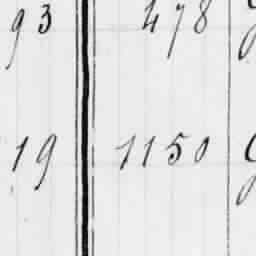 93 478
19 1150